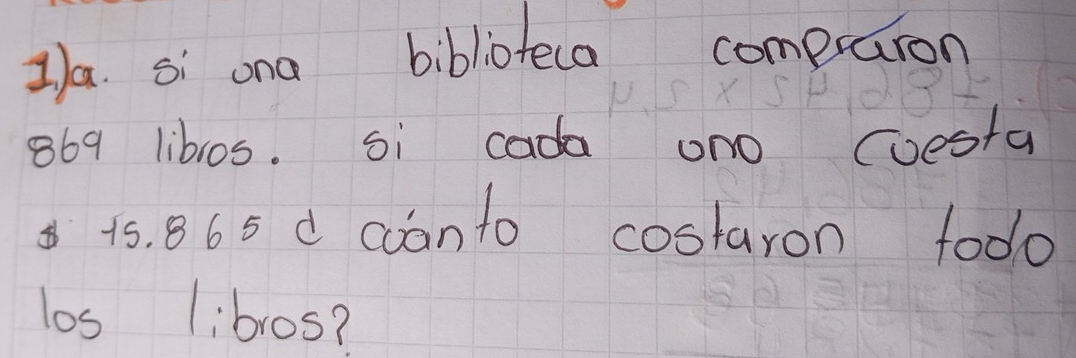 1.)a. si una biblioteca compraron
869 libros. si cada uno cuesta
$ 15.865 ¿ cuánto costaron todo
los libros?